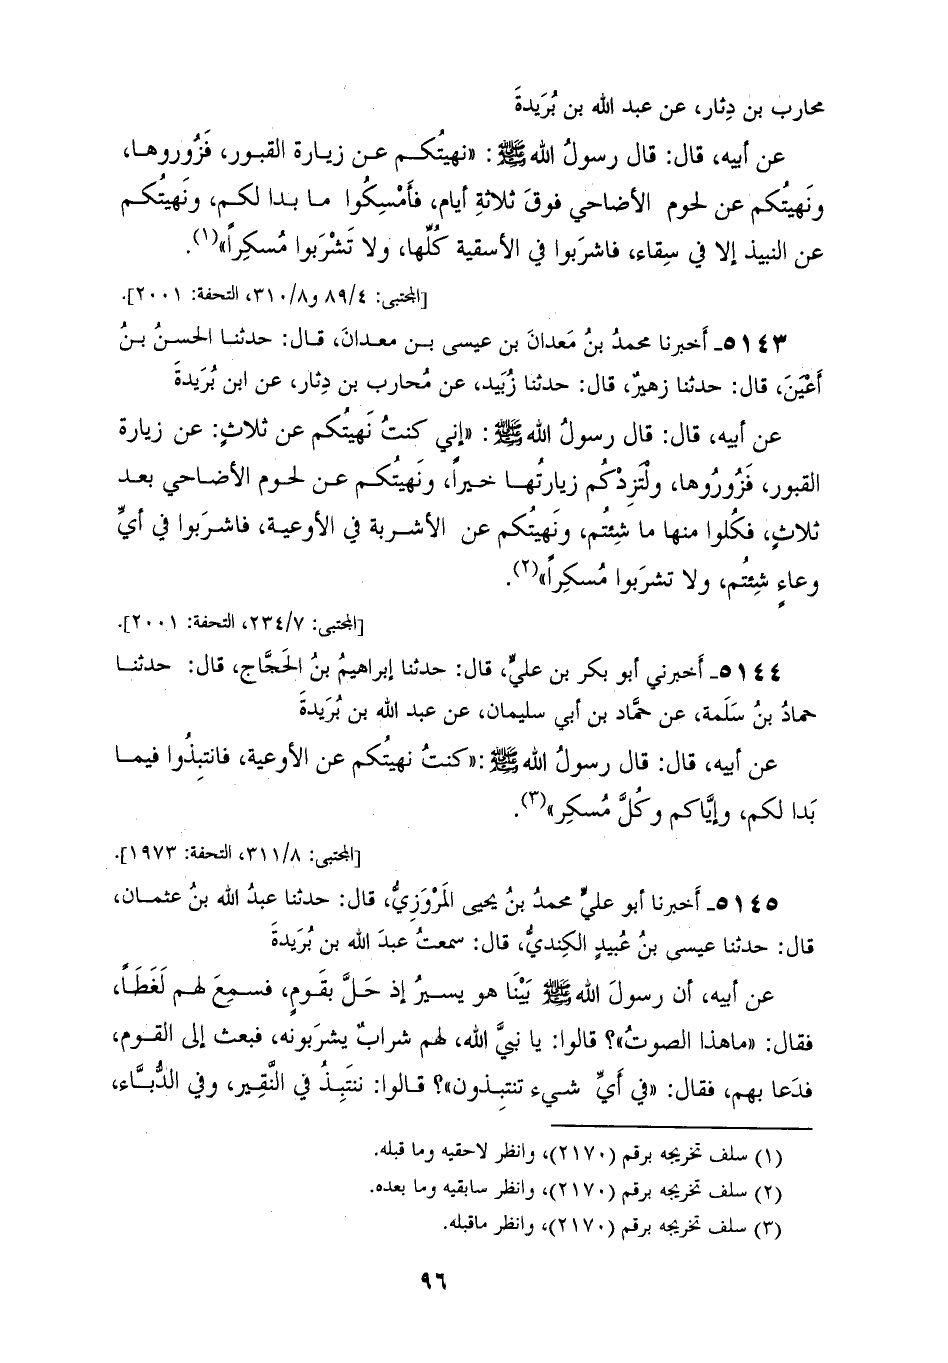 محارب بن دِثار، عن عبد الله بن بُرَيدةَ
عن أبيه، قال: قال رسولُ الله ﷺ: «نهيتُكم عن زيارة القبور، فَزُوروها،
ونَهيتُكم عن لحوم الأضاحي فوقَ ثلاثةِ أيام، فأَمْسِكُوا ما بدا لكم، ونَهيتُكم
عن النبيذ إلا في سِقاء، فاشرَبوا في الأسقية كُلِّها، ولا تَشْرَبوا مُسكِراً»(١).
[المجتبى: ٨٩/٤ و٣١٠/٨، التحفة: ٢٠٠١].
٥١٤٣ـ أَخبرنا محمدُ بنُ مَعدانَ بن عيسى بن معدانَ، قال: حدثنا الحسنُ بنُ
أَعْيَنَ، قال: حدثنا زهيرٌ، قال: حدثنا زُبَيد، عن مُحارب بن دِثار، عن ابن بُرَيدةَ
عن أبيه، قال: قال رسولُ الله ﷺ: «إني كنتُ نَهيتُكم عن ثلاثٍ: عن زيارة
القبور، فَزُورُوها، ولْتَزِدْكُم زيارتُها خيراً، ونَهيتُكم عن لحوم الأضاحي بعد
ثلاثٍ، فكُلوا منها ما شِئتُم، ونَهيتُكم عن الأشربة في الأوعية، فاشرَبوا في أيِّ
وعاءٍ شِئتُم، ولا تشرَبوا مُسكِراً»(٢).
[المجتبى: ٢٣٤/٧، التحفة: ٢٠٠١].
٥١٤٤ـ أَخبرني أبو بكر بن عليٍّ، قال: حدثنا إبراهيمُ بنُ الحَجَّاج، قال: حدثنا
حمادُ بنُ سَلَمة، عن حمَّاد بن أبي سليمان، عن عبد الله بن بُرَيدةَ
عن أبيه، قال: قال رسولُ الله ﷺ: «كنتُ نهيتُكم عن الأوعية، فانتبِذُوا فيما
بَدا لكم، وإيَّاكم وكُلَّ مُسكِر»(٣).
[المجتبى: ٣١١/٨، التحفة: ١٩٧٣].
٥١٤٥ـ أَخبرنا أبو عليٍّ محمدُ بنُ يحيى المَرْوَزِيُّ، قال: حدثنا عبدُ الله بنُ عثمان،
قال: حدثنا عيسى بنُ عُبيدٍ الكِنديُّ، قال: سمعتُ عبدَ الله بن بُرَيدةَ
عن أبيه، أن رسولَ الله ﷺ بَيْنَا هو يسيرُ إذ حَلَّ بقَومٍ، فسمِعَ لهم لَغَطَاً،
فقال: «ماهذا الصوتُ»؟ قالوا: يا نبيَّ الله، لهم شرابٌ يشرَبونه، فبعث إلى القوم،
فدَعا بهم، فقال: «في أَيِّ شيء تنتبِذون»؟ قالوا: ننتَبِذُ في النَّقِير، وفي الدُّبَّاء،
(١) سلف تخريجه برقم (٢١٧٠)، وانظر لاحقيه وما قبله.
(٢) سلف تخريجه برقم (٢١٧٠)، وانظر سابقيه وما بعده.
(٣) سلف تخريجه برقم (٢١٧٠)، وانظر ماقبله.
٩٦